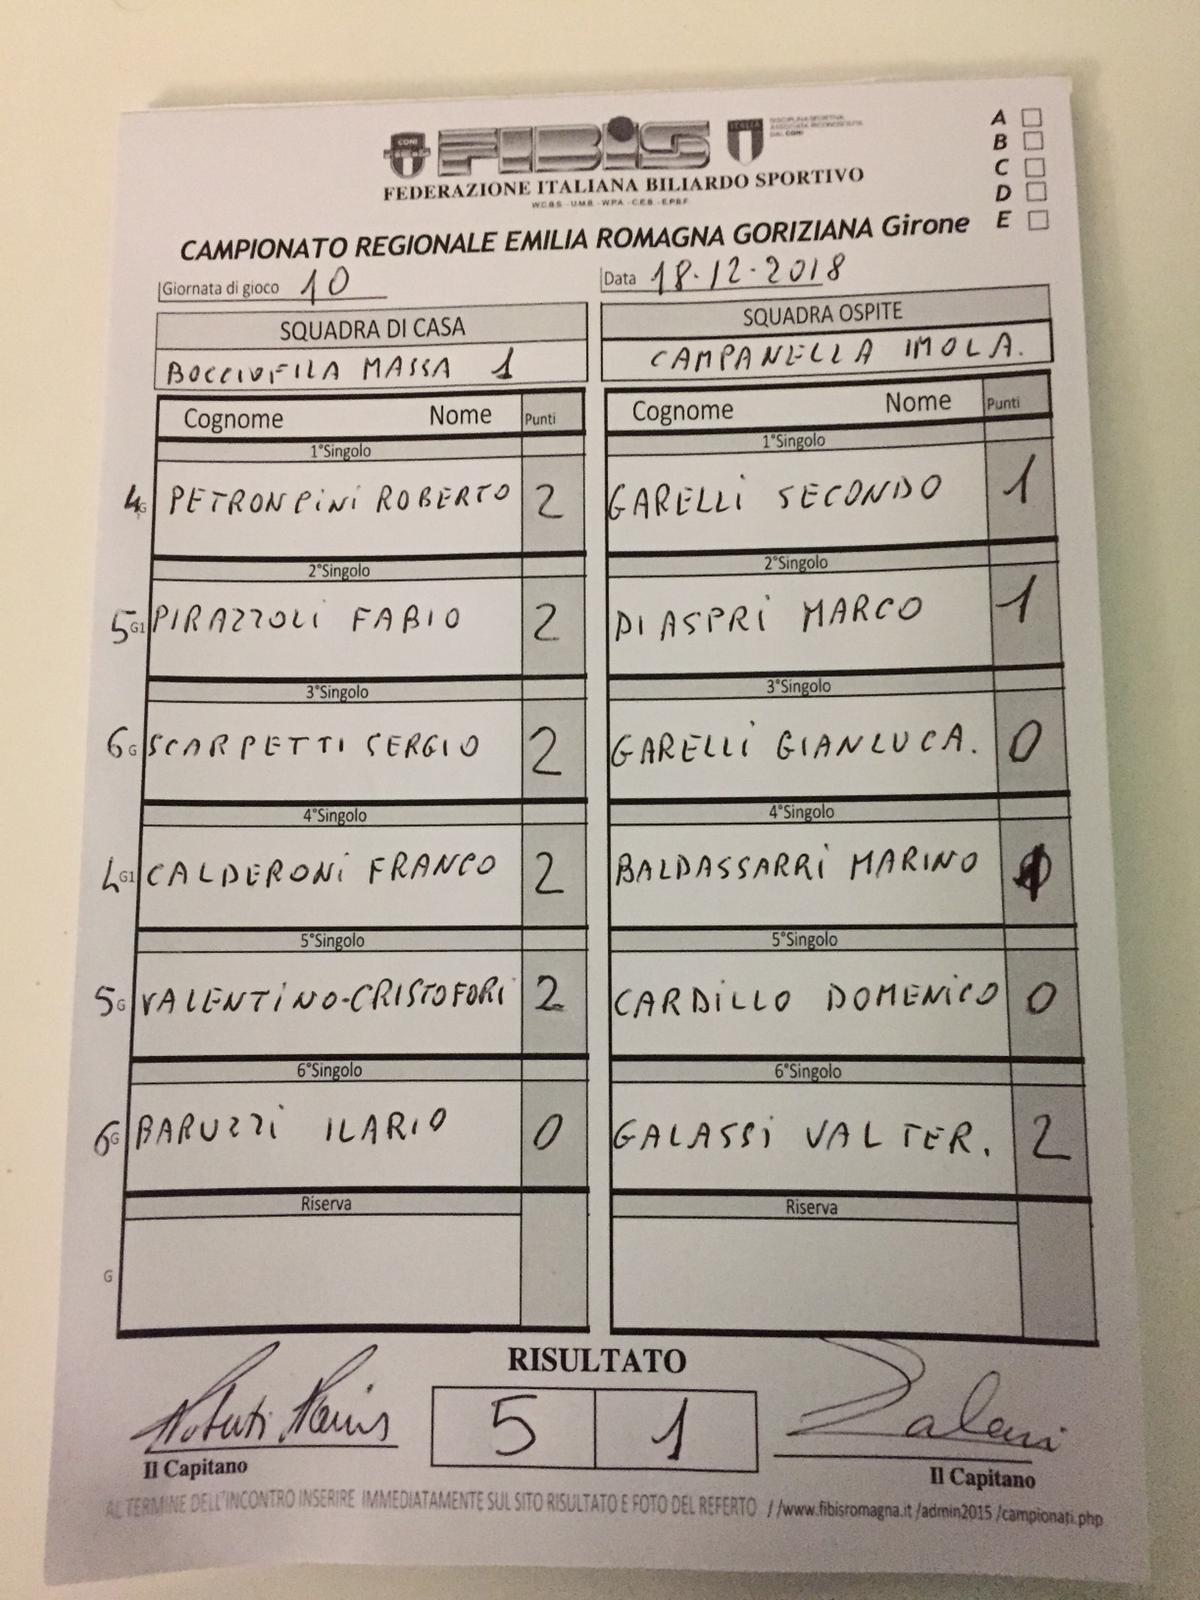 A
B
C
D
E
CONI
FIBIS
ITALIA
DISCIPLINA SPORTIVA
ASSOCIATA RICONOSCIUTA
DAL CONI
FEDERAZIONE ITALIANA BILIARDO SPORTIVO
W.C.B.S. - U.M.B. - W.P.A. - C.E.B. - E.P.B.F.
CAMPIONATO REGIONALE EMILIA ROMAGNA GORIZIANA Girone
Giornata di gioco 10 Data 18.12.2018
SQUADRA DI CASA SQUADRA OSPITE
BOCCIOFILA MASSA 1 CAMPANELLA IMOLA.
Cognome Nome Punti Cognome Nome Punti
1°Singolo 1°Singolo
4 G PETRONCINI ROBERTO 2 GARELLI SECONDO 1
2°Singolo 2°Singolo
5 G1 PIRAZZOLI FABIO 2 DIASPRI MARCO 1
3°Singolo 3°Singolo
6 G SCARPETTI SERGIO 2 GARELLI GIANLUCA. 0
4°Singolo 4°Singolo
4 G1 CALDERONI FRANCO 2 BALDASSARRI MARINO 1
5°Singolo 5°Singolo
5 G VALENTINO-CRISTOFORI 2 CARDILLO DOMENICO 0
6°Singolo 6°Singolo
6 G BARUZZI ILARIO 0 GALASSI VALTER. 2
Riserva Riserva
G
RISULTATO
5 1
Il Capitano Il Capitano
AL TERMINE DELL'INCONTRO INSERIRE IMMEDIATAMENTE SUL SITO RISULTATO E FOTO DEL REFERTO //www.fibisromagna.it /admin2015 /campionati.php